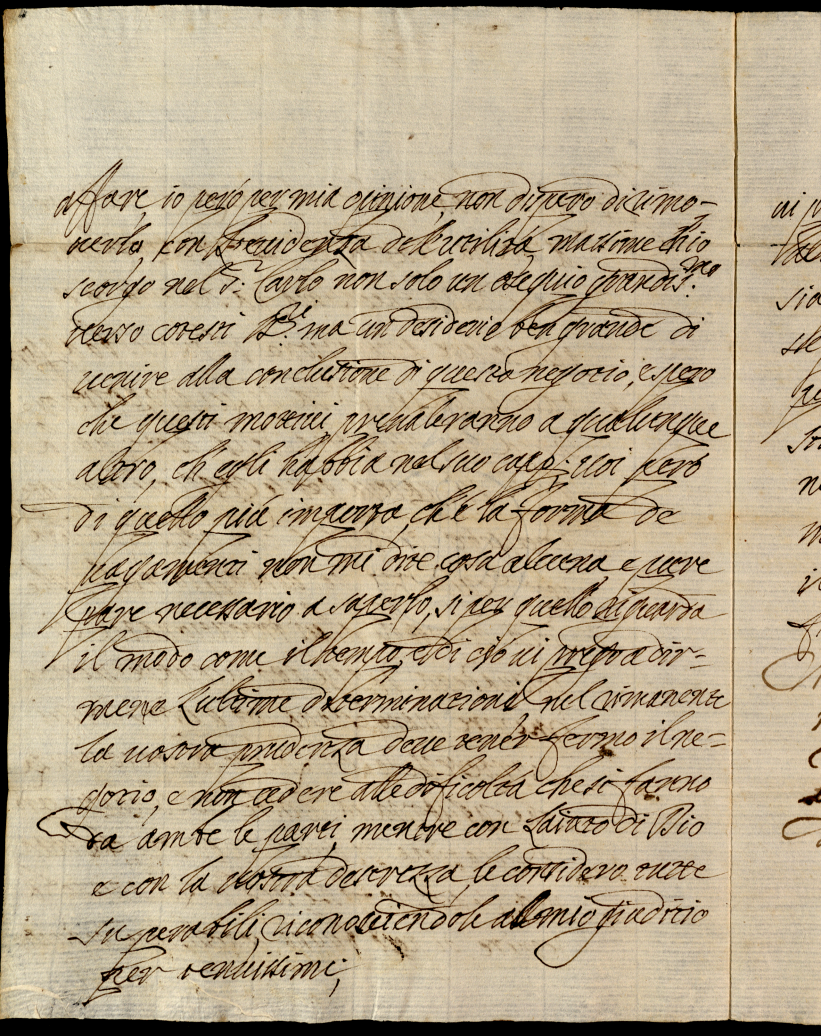 affare, io però per mia opinione non dispero di rimo-
verlo, con l'evidenza dell'utilità, massime ch'io
scorgo nel S.r Carlo non solo un ossequio grandis.mo
verso cotesti PP.ri ma un desiderio ben grande di
venire alla conclusione di questo negotio, e spero
che questi motivi prevaleranno a qualunque
altro, ch'egli habbia nel suo capo; voi però
di quello più importa, ch'è la forma de
pagamenti non mi dite cosa alcuna e pure
pare necessario a saperlo, si per quello riguarda
il modo come il tempo, e di ciò vi prego a dir-
mene l'ultime determinationi nel rimanente
la vostra prudenza deve tener fermo il ne-
gotio, e non cedere alle dificoltà che si fanno
da ambe le parti, mentre con l'aiuto di Dio
e con la vostra destrezza le considero tutte
superabili, riconoscendole al mio giuditio
per tenuissime;